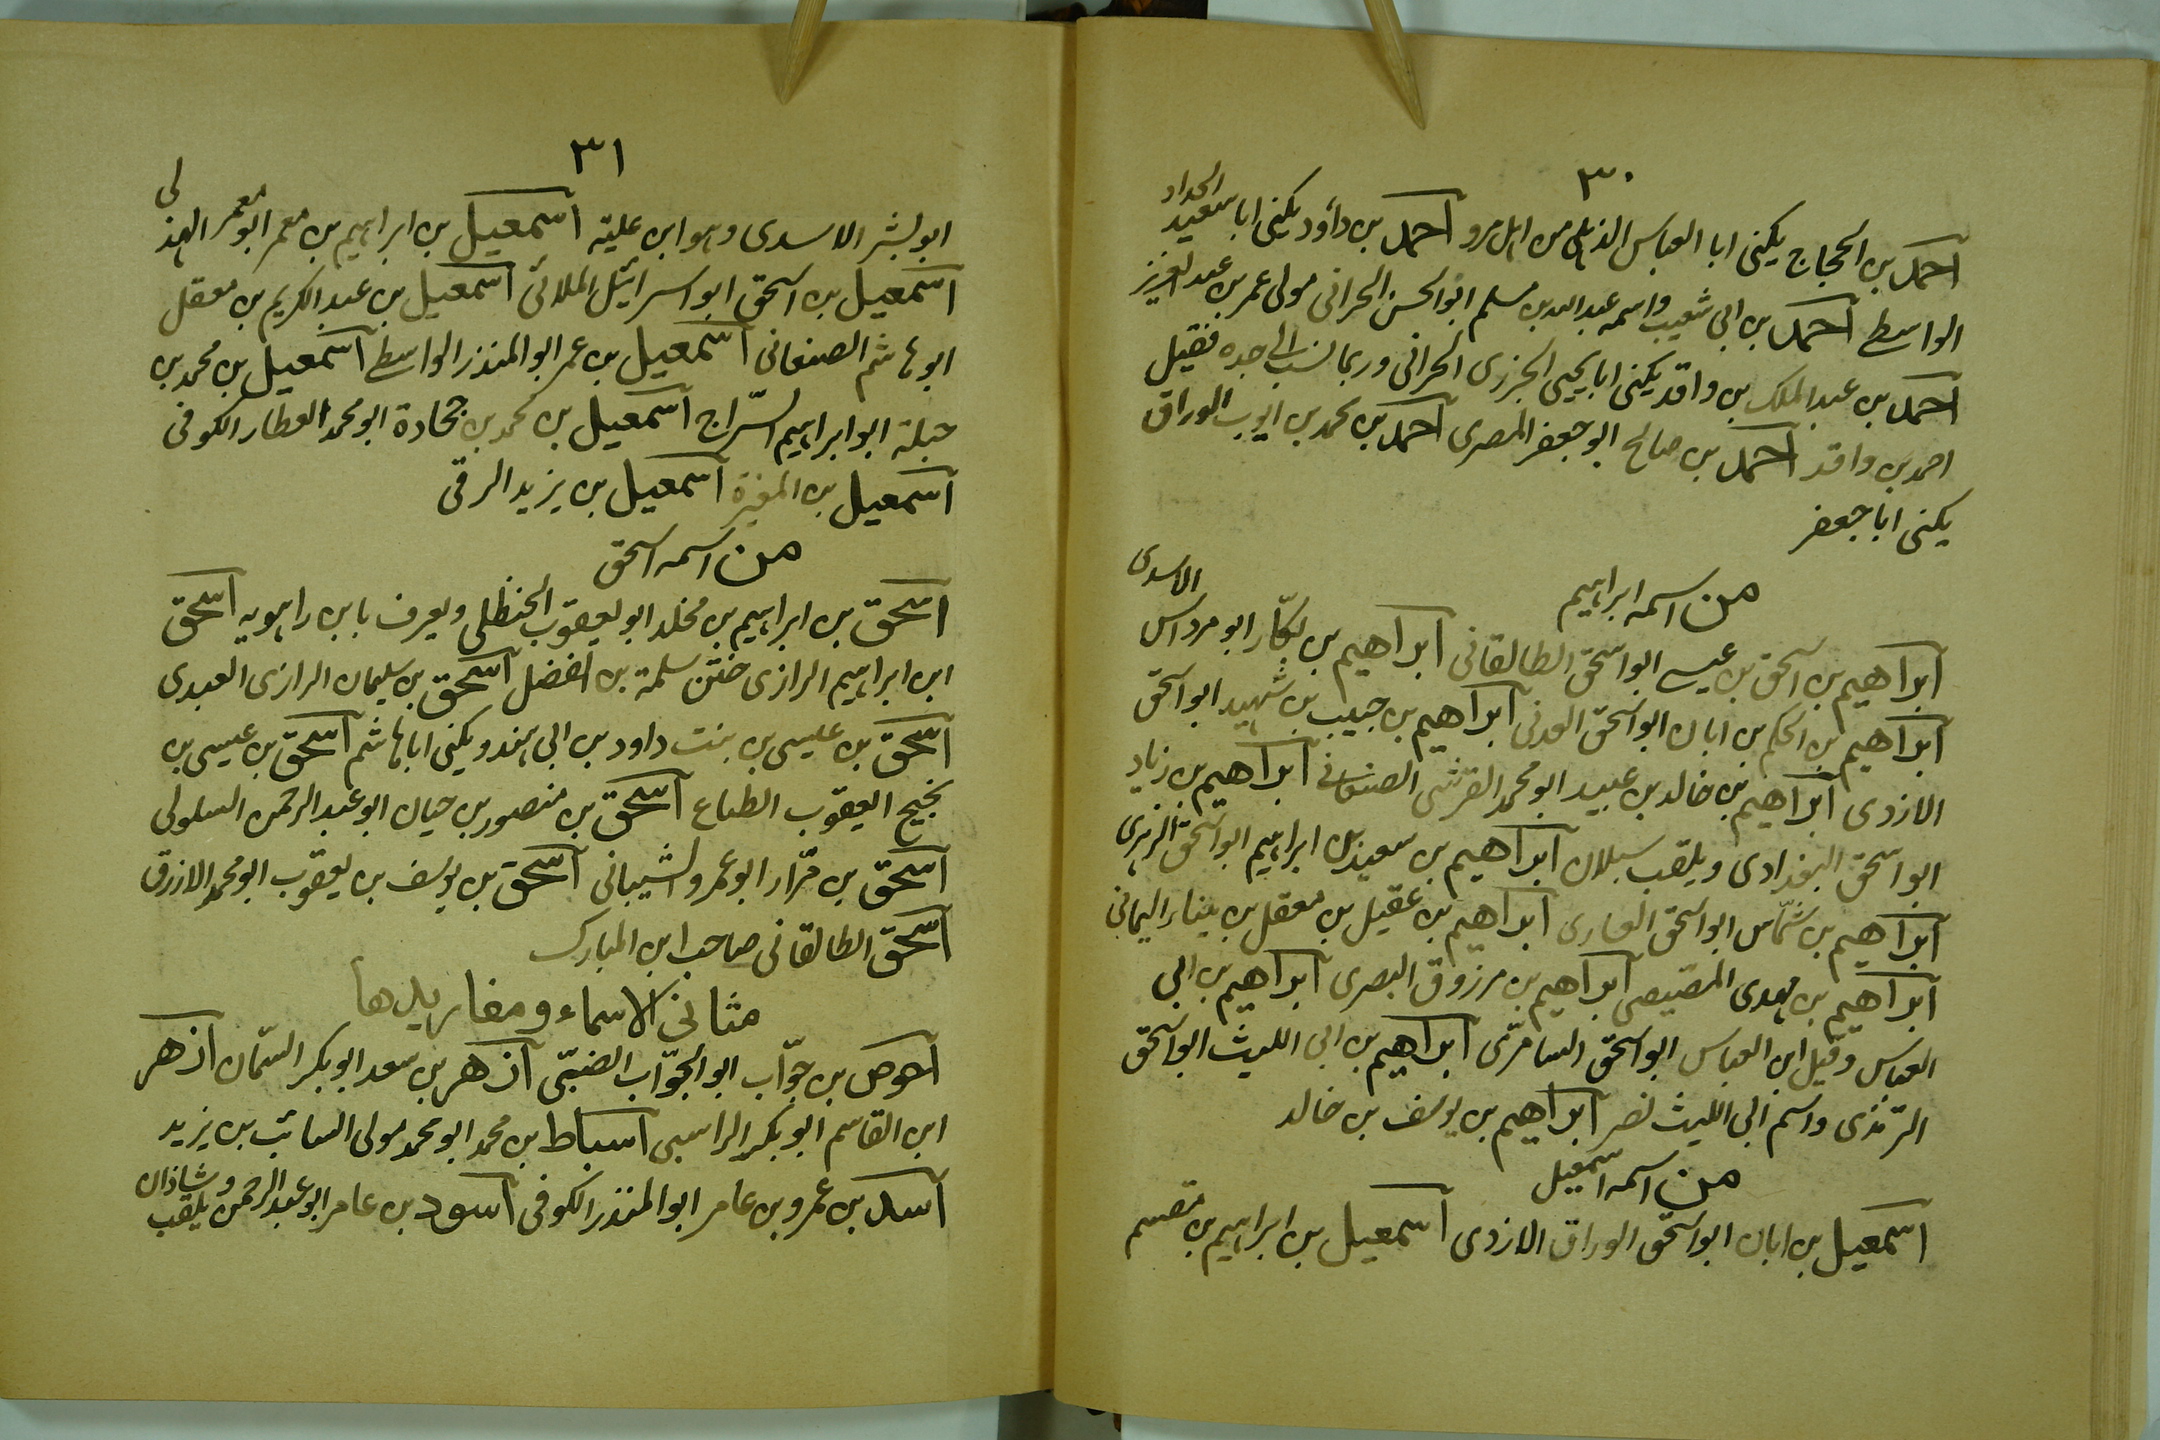 ٣٠
احمد بن الحجاج يكنى ابا العباس الذهلي من اهل مرو احمد بن داؤد يكنى ابا سعيد الحداد
الواسطے احمد بن ابى شعيب واسمه عبد الله بن مسلم ابو الحسن الحرانى مولى عمر بن عبد العزيز
احمد بن عبد الملك بن واقد يكنى ابا يحيى الجزرى الحرانى وربما نسب الى جده فقيل
احمد بن واقد احمد بن صالح ابو جعفر المصرى احمد بن محمد بن ايوب الوراق
يكنى ابا جعفر
من اسمه ابراهيم
ابراهيم بن اسحق بن عيسے ابو اسحق الطالقانى ابراهيم بن بكّار ابو مرداس الاسدى
ابراهيم بن الحكم بن ابان ابو اسحق العدنى ابراهيم بن حبيب بن شهيد ابو اسحق
الازدى ابراهيم بن خالد بن عبيد ابو محمد القرشى الصنعانے ابراهيم بن زياد
ابو اسحق البغدادى ويلقب سبلان ابراهيم بن سعيد بن ابراهيم ابو اسحق الزهرى
ابراهيم بن شمّاس ابو اسحق الغازى ابراهيم بن عقيل بن معقل بن منباء اليمانى
ابراهيم بن مهدى المصيصى ابراهيم بن مرزوق البصرى ابراهيم بن ابى
العباس وقيل ابن العباس ابو اسحق السامرّى ابراهيم بن ابى الليث ابو اسحق
الترمذى واسم ابى الليث نصر ابراهيم بن يوسف بن خالد
من اسمه اسمعيل
اسمعيل بن ابان ابو اسحق الوراق الازدى اسمعيل بن ابراهيم بن مقسم
٣١
ابو بشر الاسدى وهو ابن علية اسمعيل بن ابراهيم بن معمر ابو معمر الهذلى
اسمعيل بن اسحق ابو اسرائيل الملائى اسمعيل بن عبد الكريم بن معقل
ابو هاشم الصنعانى اسمعيل بن عمر ابو المنذر الواسطے اسمعيل بن محمد بن
جبلة ابو ابراهيم السّراج اسمعيل بن محمد بن جحادة ابو محمد العطار الكوفى
اسمعيل بن المغيرة اسمعيل بن يزيد الرقى
من اسمه اسحق
اسحق بن ابراهيم بن مخلد ابو يعقوب الحنظلى ويعرف بابن راهويه اسحق
ابن ابراهيم الرازى ختن سلمة بن الفضل اسحق بن سليمان الرازى العبدى
اسحق بن عيسى بن بنت داود بن ابى هند ويكنى ابا هاشم اسحق بن عيسى بن
نجيح اليعقوب الطباع اسحق بن منصور بن حيان ابو عبد الرحمن السلولى
اسحق بن مرّار ابو عمرو الشيبانى اسحق بن يوسف بن يعقوب ابو محمد الازرق
اسحق الطالقانى صاحب ابن المبارك
مثانى الاسماء ومفاريدها
احوص بن جوّاب ابو الجوّاب الضبّى ازهر بن سعد ابو بكر السّمان ازهر
ابن القاسم ابو بكر الراسبى اسباط بن محمد ابو محمد مولى السائب بن يزيد
اسد بن عمرو بن عامر ابو المنذر الكوفى اسود بن عامر ابو عبد الرحمن ويلقب شاذان